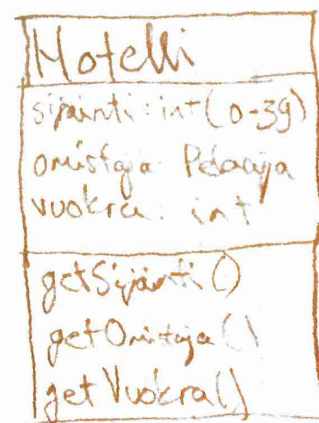 Hotelli
sijainti: int (0-39)
omistaja: Pelaaja
vuokra: int
getSijainti()
getOmistaja()
getVuokra()